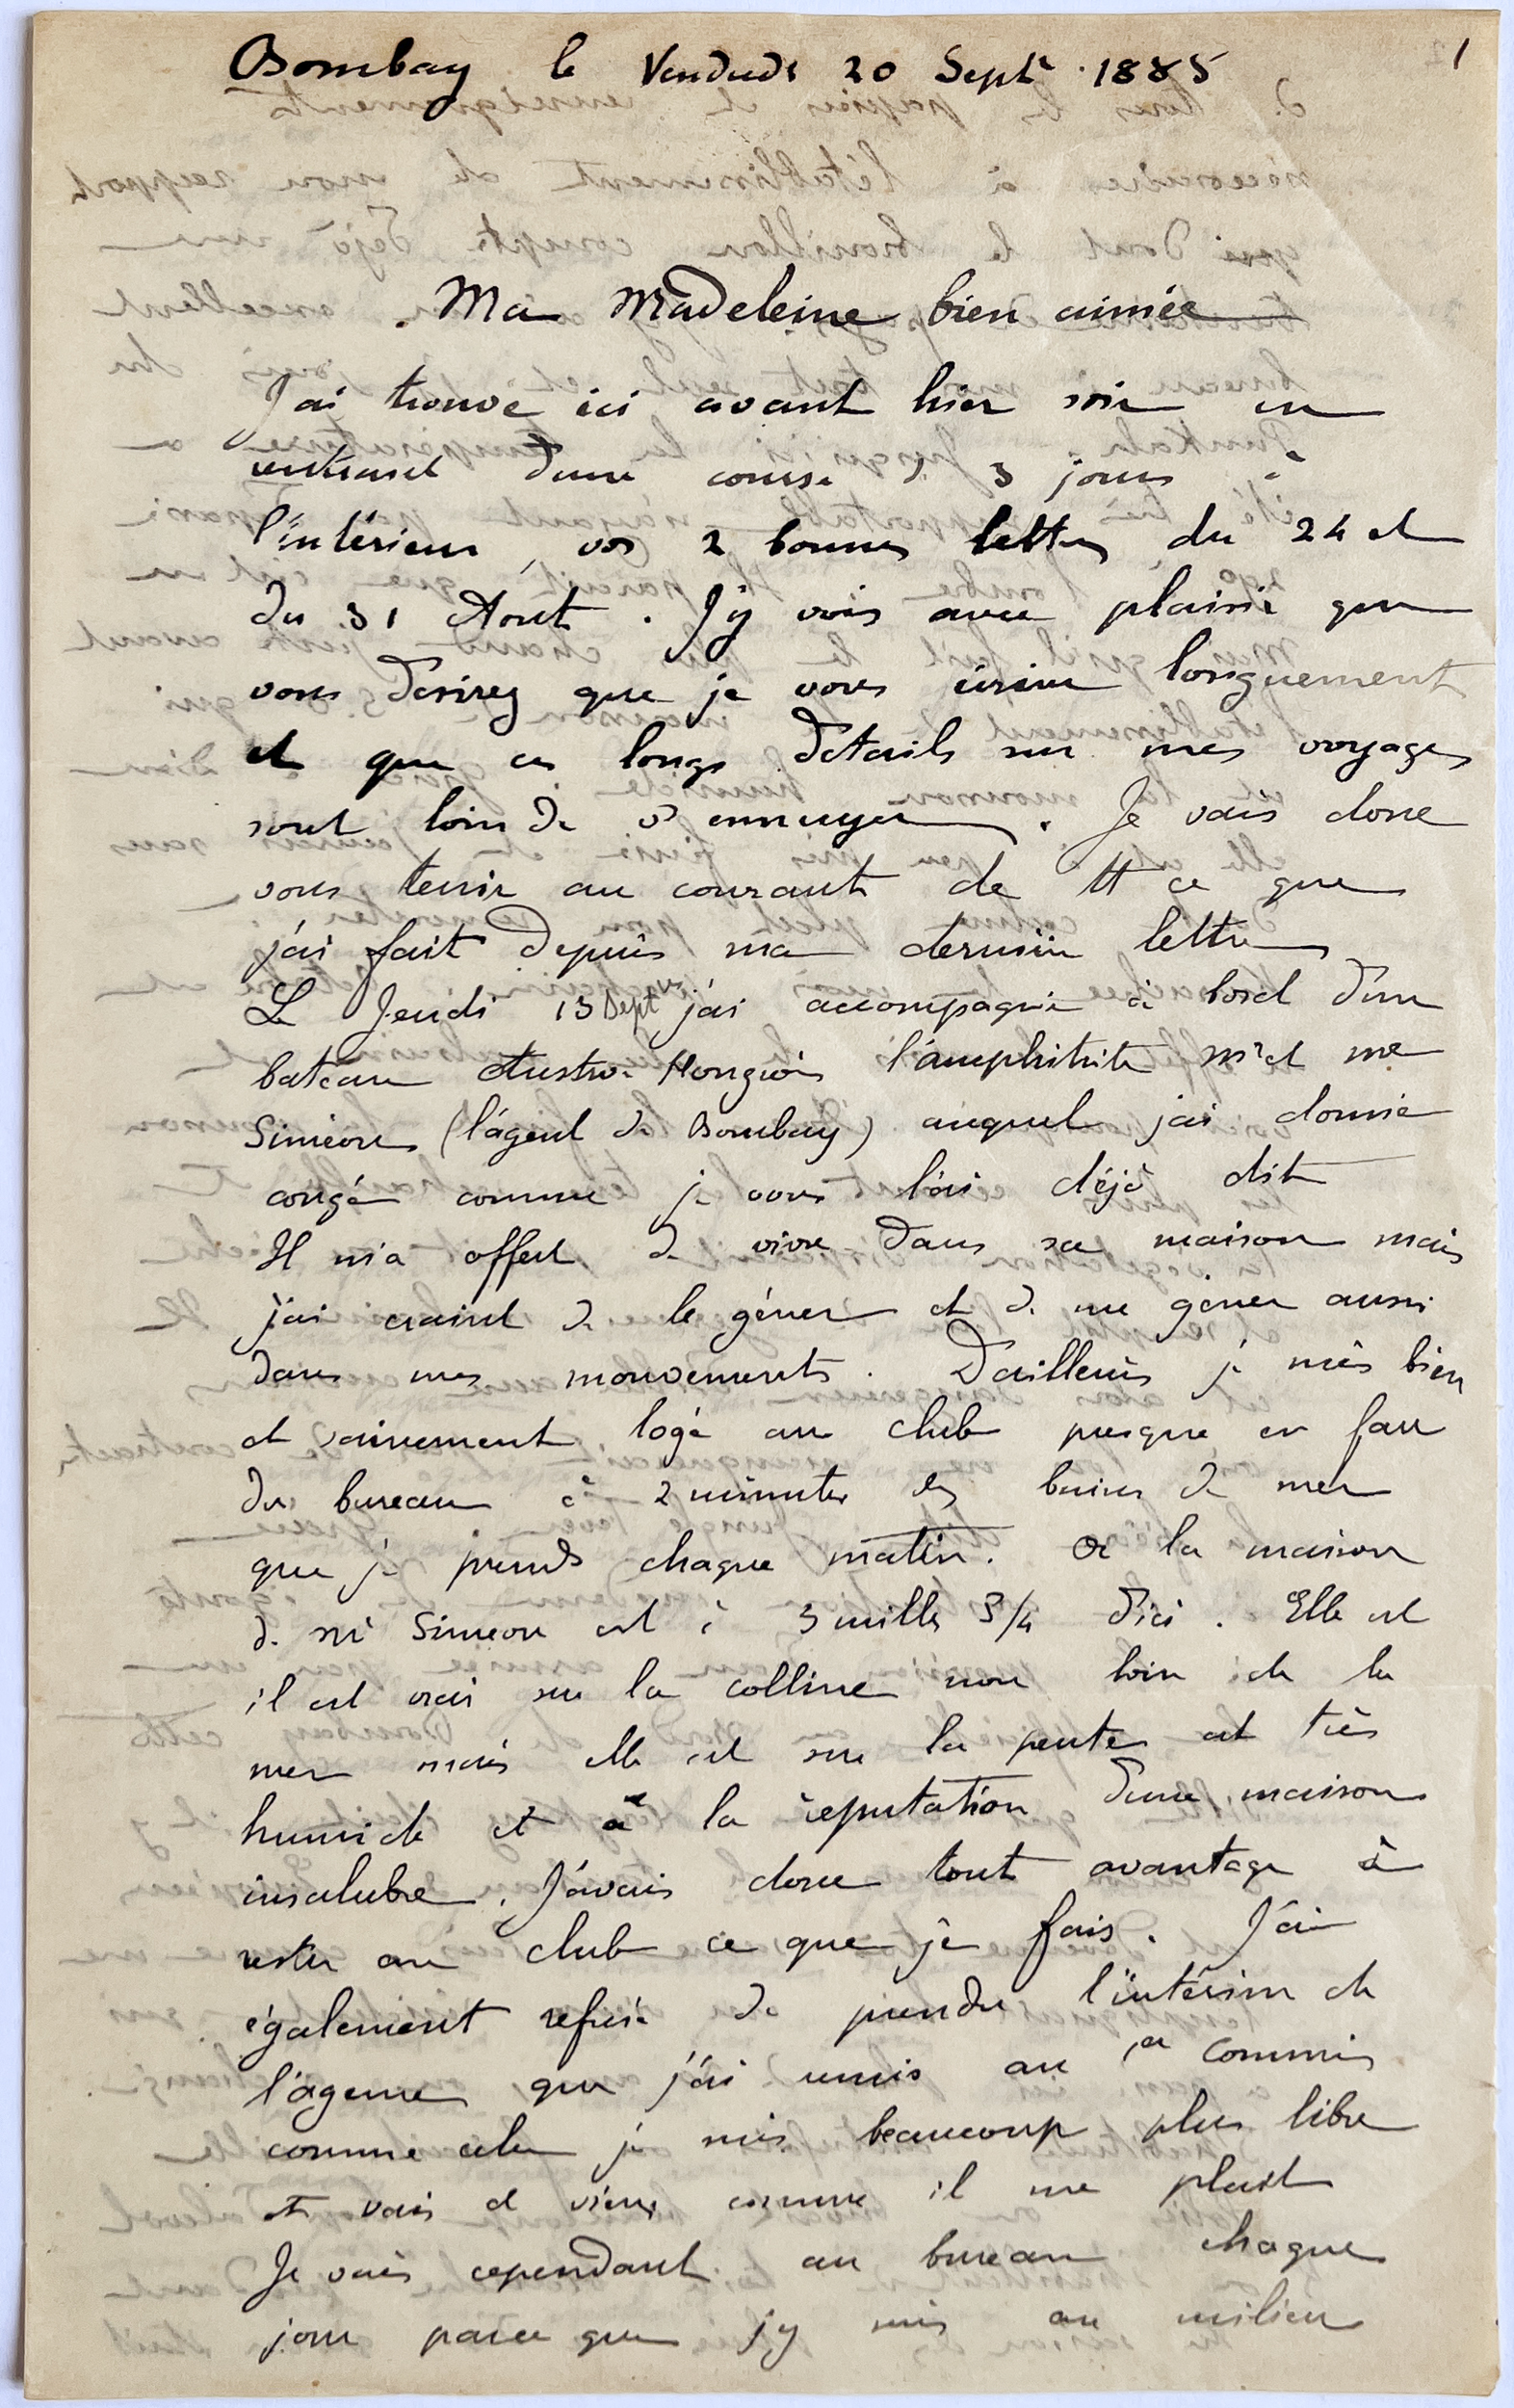 1
Bombay le Vendredi 20 Septe 1885
Ma Madeleine bien aimée
J'ai trouvé ici avant hier soir en
rentrant d'une course de 3 jours à
l'intérieur, vos 2 bonnes lettres du 24 et
du 31 Août. J'y vois avec plaisir que
vous désirez que je vous écrive longuement
et que ces longs détails sur mes voyages
sont loin de vs ennuyer. Je vais donc
vous tenir au courant de tt ce que
j'ai fait depuis ma dernière lettre
Le Jeudi 13 Sept j'ai accompagné à bord d'un
bateau Austro-Hongrois l'amphitrite Mr et Me
Siméon (l'agent de Bombay) auquel j'ai donné
congé comme je vous l'ai déjà dit
Il m'a offert de vivre dans sa maison mais
j'ai craint de le gêner et de me gêner aussi
dans mes mouvements. D'ailleurs je suis bien
et sainement logé au club presque en face
du bureau à 2 minutes des bains de mer
que je prends chaque matin. Or la maison
de Mr Siméon est à 3 milles 3/4 d'ici. Elle est
il est vrai sur la colline non loin de la
mer mais elle est sur la pente est très
humide et a la réputation d'une maison
insalubre. J'avais donc tout avantage à
rester au club ce que je fais. J'ai
également refusé de prendre l'intérim de
l'agence que j'ai remis au 1er commis
comme cela je suis beaucoup plus libre
et vais et viens comme il me plait
Je vais cependant au bureau chaque
jour parce que j'y suis au milieu